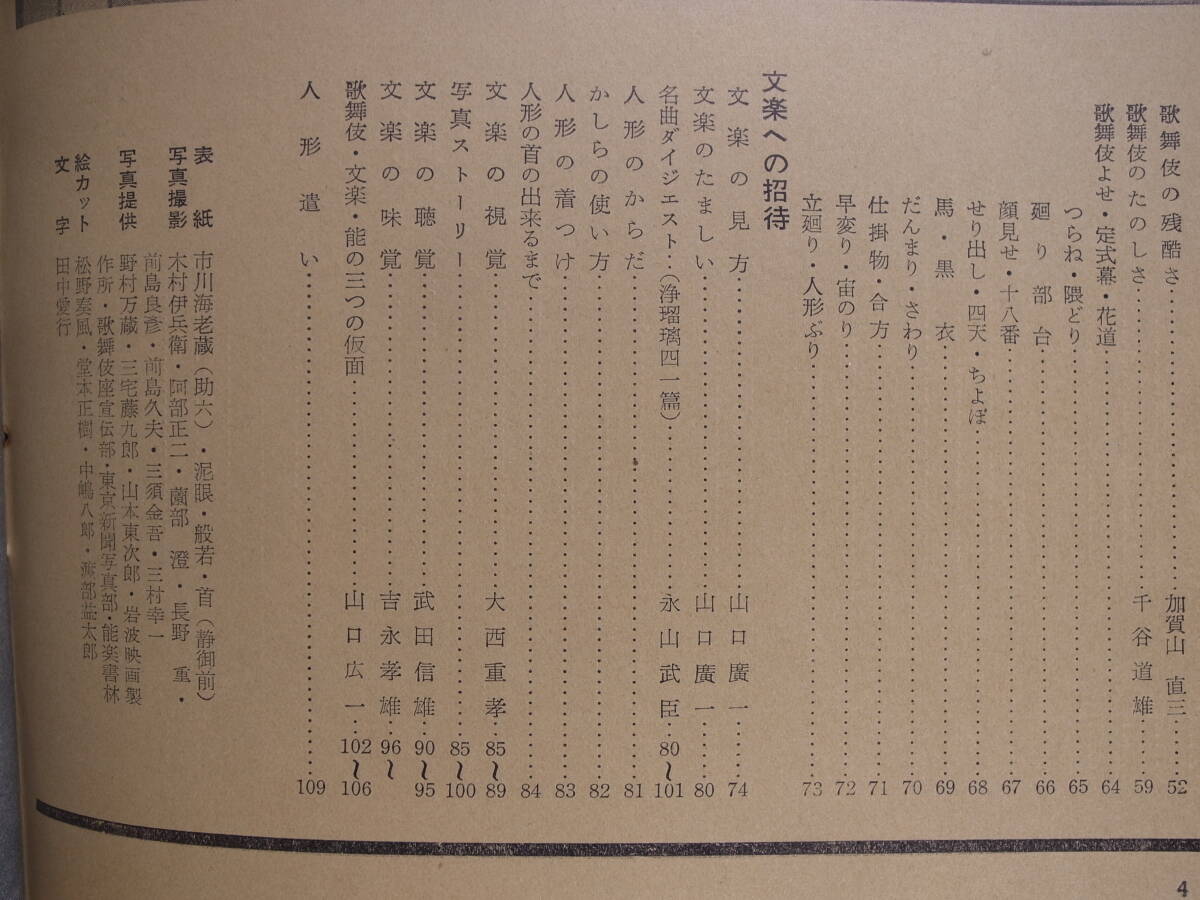 歌舞伎の残酷さ……加賀山直三…52
歌舞伎のたのしさ……千谷道雄…59
歌舞伎よせ・定式幕・花道……64
つらね・隈どり……65
廻り部台……66
顔見せ・十八番……67
せり出し・四天・ちよぼ……68
馬・黒衣……69
だんまり・さわり……70
仕掛物・合方……71
早変り・宙のり……72
立廻り・人形ぶり……73
文楽への招待
文楽の見方……山口廣一…74
文楽のたましい……山口廣一…80
名曲ダイジエスト‥(浄瑠璃四一篇)……永山武臣…80〜101
人形のからだ……81
かしらの使い方……82
人形の着つけ……83
人形の首の出来るまで……84
文楽の視覚……大西重孝…85〜89
写真ストーリー……85〜100
文楽の聴覚……武田信雄…90〜95
文楽の味覚……吉永孝雄…96〜
歌舞伎・文楽・能の三つの仮面……山口広一…102〜106
人形遣い……109
表紙 市川海老蔵(助六)・泥眼・般若・首(静御前)
写真撮影 木村伊兵衛・阿部正二・薗部澄・長野重・
前島良彦・前島久夫・三須金吾・三村幸一
写真提供 野村万蔵・三宅藤九郎・山本東次郎・岩波映画製
作所・歌舞伎座宣伝部・東京新聞写真部・能楽書林
絵カット 松野奏風・堂本正樹・中嶋八郎・渡部益太郎
文字 田中愛行
4